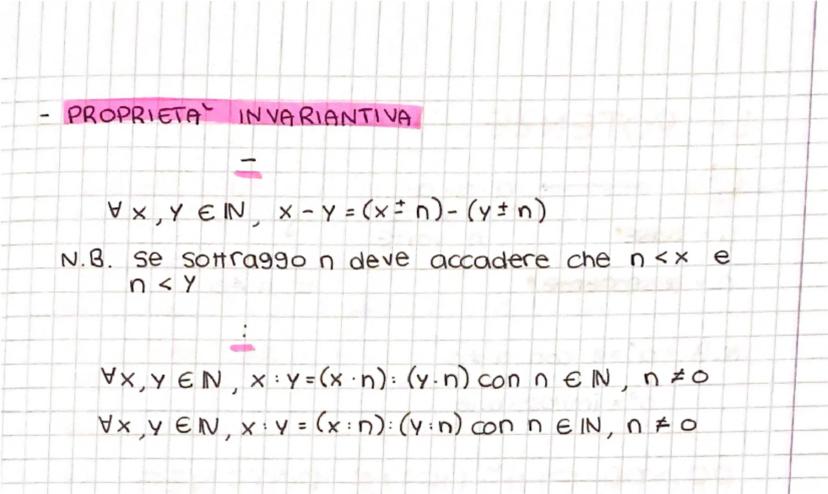 - PROPRIETA' INVARIANTIVA
-
∀x,y ∈ ℕ, x-y=(x±n)-(y±n)
N.B. se sottraggo n deve accadere che n<x e
n<y
:
∀x,y ∈ ℕ, x:y=(x·n):(y·n) con n ∈ ℕ, n≠0
∀x,y ∈ ℕ, x:y=(x:n):(y:n) con n ∈ ℕ, n≠0